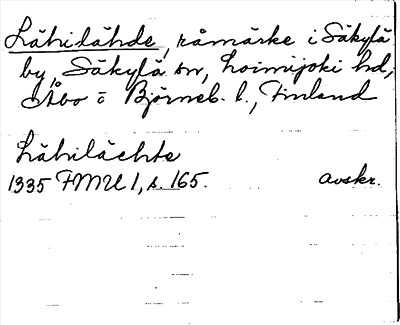 Lähilähde, råmärke i Säkylä
by, Säkylä sn, Loimijoki hd,
Åbo o Björneb. l., Finland
Lähilächte
1335 FMU 1, s. 165. avskr.